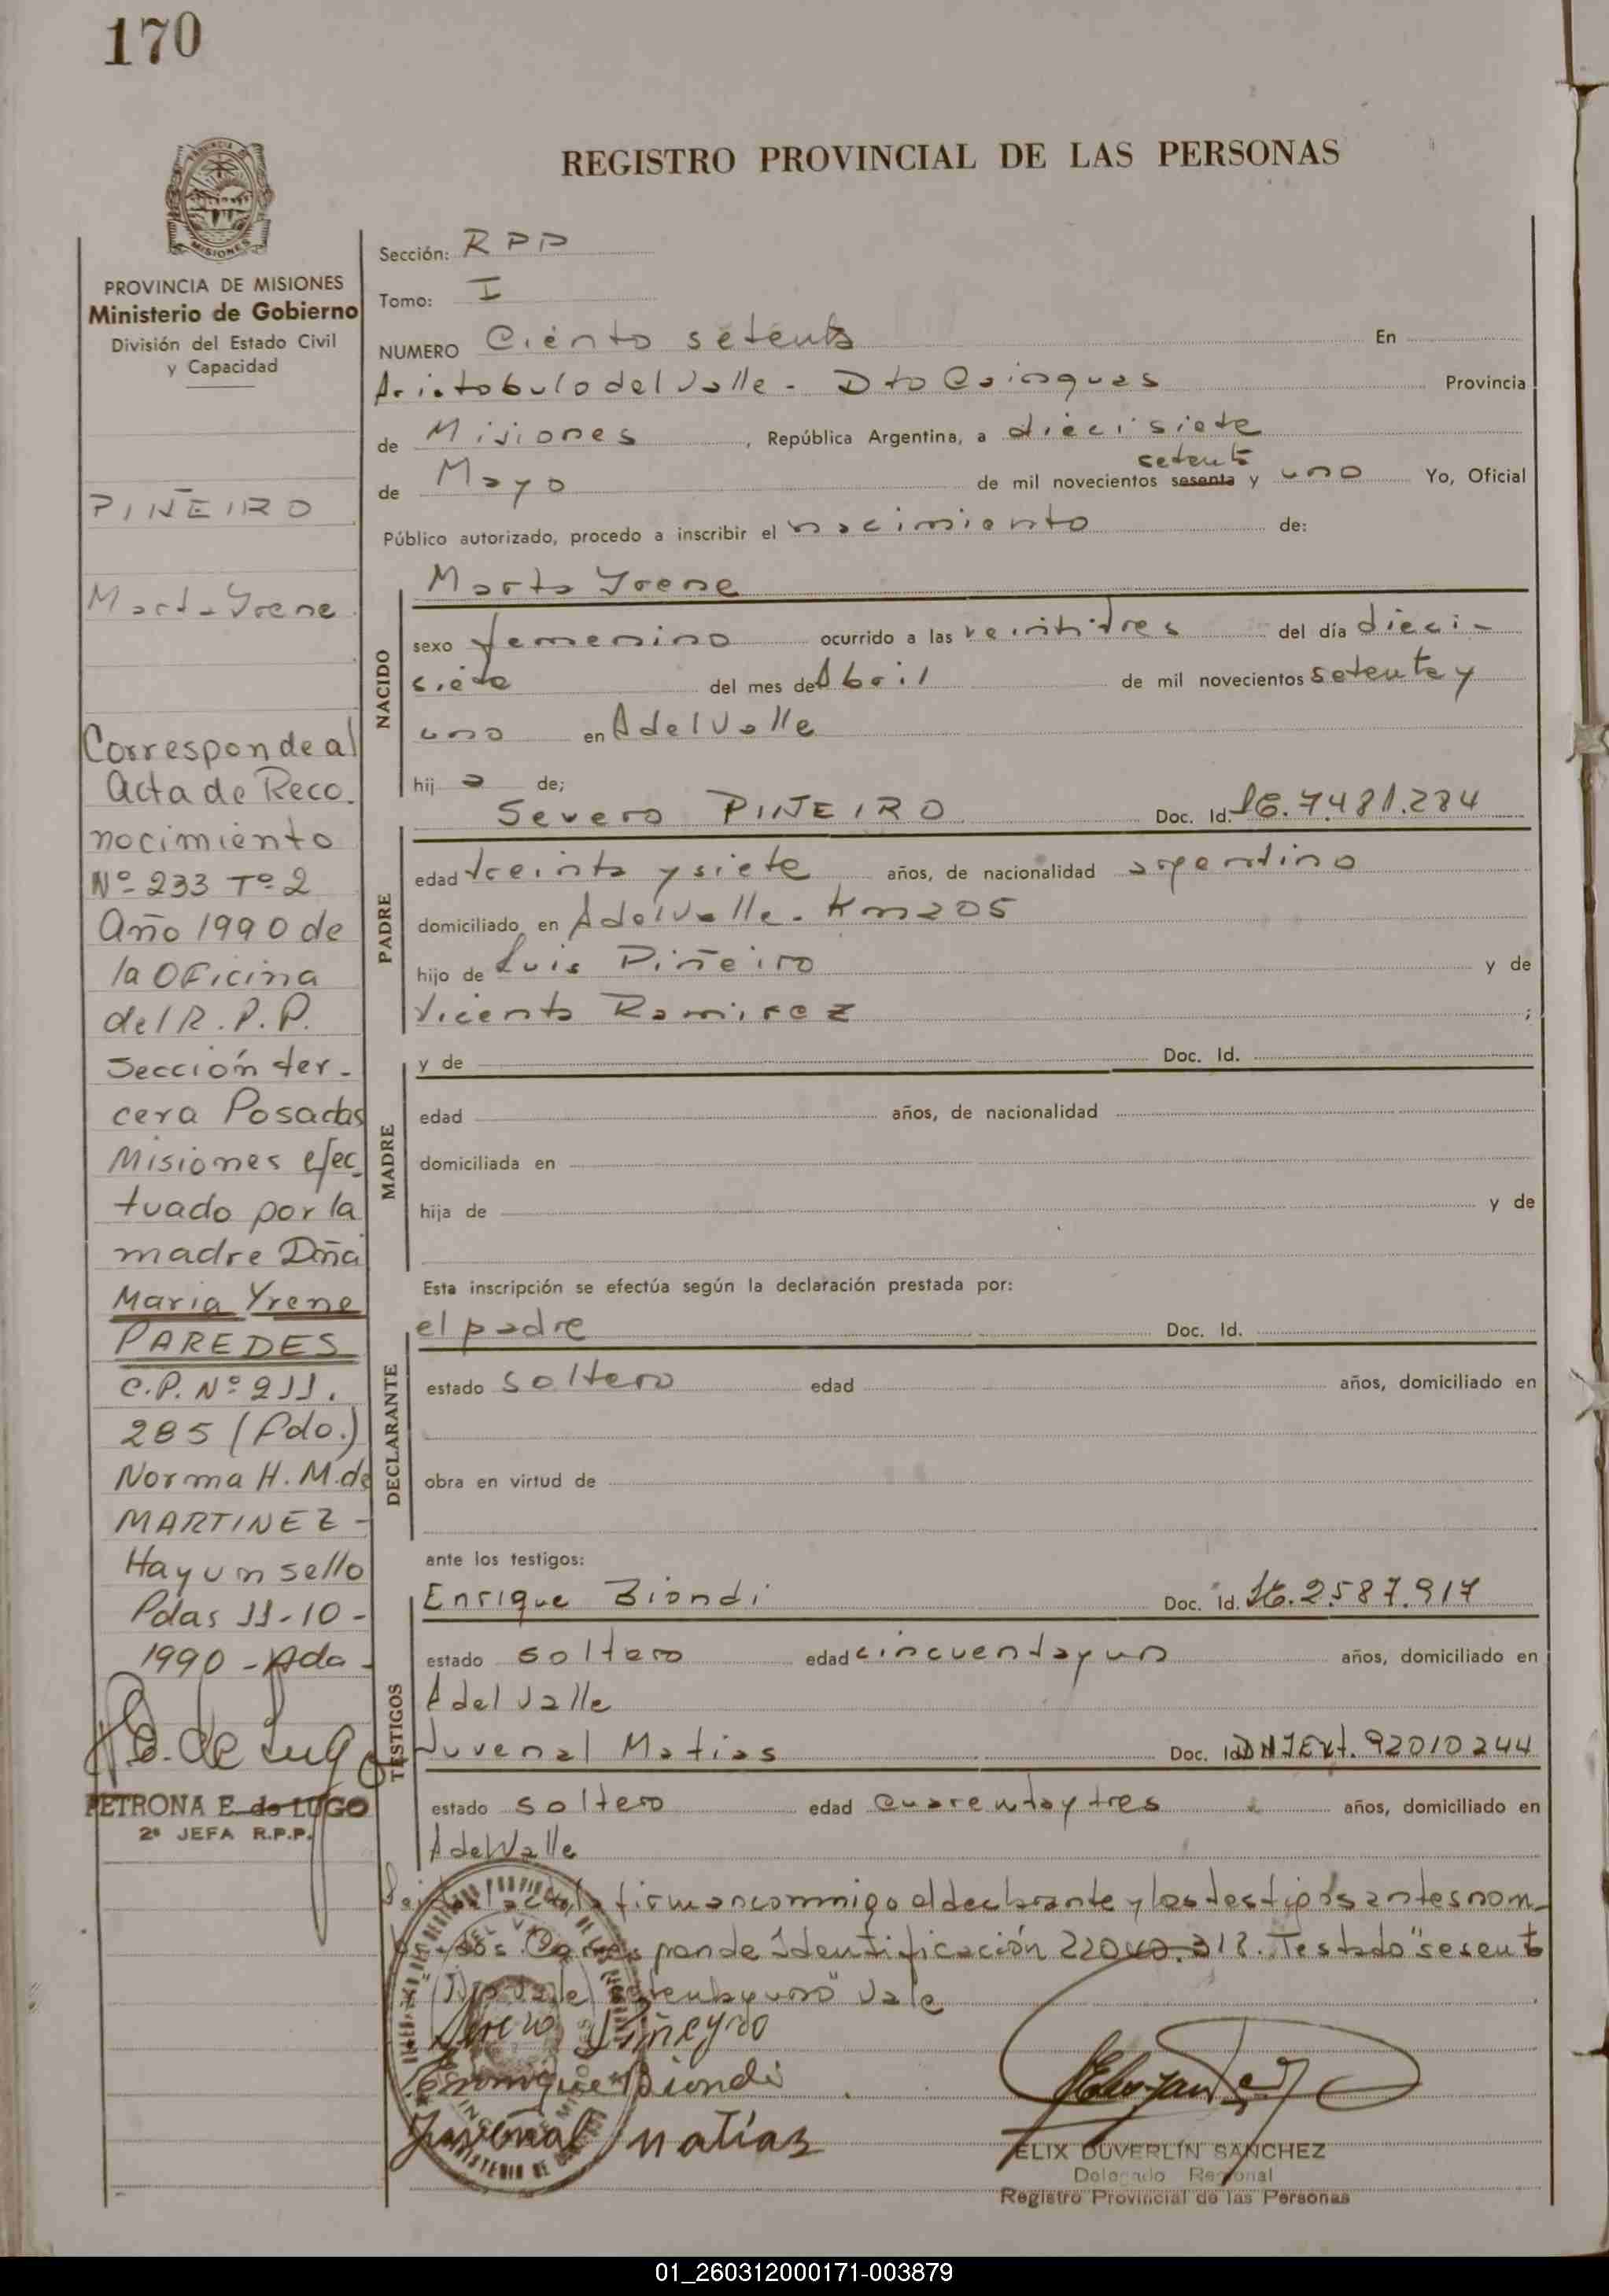 170
REGISTRO PROVINCIAL DE LAS PERSONAS
PROVINCIA DE MISIONES
Ministerio de Gobierno
División del Estado Civil
y Capacidad
PIÑEIRO
Marta Yrene
Corresponde al
Acta de Reco.
nocimiento
Nº 233 Tº 2
Año 1990 de
la Oficina
del R.P.P.
Sección ter-
cera Posadas
Misiones efec_
tuado por la
madre Dña
Maria Yrene
PAREDES
C.P. Nº 211.
285 (Fdo.)
Norma H. M. de
MARTINEZ -
Hay un sello
Pdas 11-10-
1990 - Ada -
de Lugo
PETRONA E. de LUGO
2ª JEFA R.P.P.
Sección: RPP
Tomo: I
NUMERO Ciento setenta En
Aristobulo del Valle - Dto Cainguas Provincia
de Misiones, República Argentina, a diecisiete
setenta
de Mayo de mil novecientos sesenta y uno Yo, Oficial
Público autorizado, procedo a inscribir el nacimiento de:
NACIDO
Marta Yrene
sexo femenino ocurrido a las veintitres del día dieci-
siete del mes de Abril de mil novecientos setenta y
uno en A del Valle
hij a de;
PADRE
Severo PIÑEIRO Doc. Id. I6.7.481.284
edad treinta y siete años, de nacionalidad argentino
domiciliado en A del Valle - Km 205
hijo de Luis Piñeiro y de
Vicenta Ramirez ;
MADRE
y de Doc. Id.
edad años, de nacionalidad
domiciliada en
hija de y de
Esta inscripción se efectúa según la declaración prestada por:
DECLARANTE
el padre Doc. Id.
estado soltero edad años, domiciliado en
obra en virtud de
ante los testigos:
TESTIGOS
Enrique Biondi Doc. Id. I6.2.587.917
estado soltero edad cincuenta y un años, domiciliado en
A del Valle
Juvenal Matias Doc. Id. DNIExt. 92010244
estado soltero edad cuarenta y tres años, domiciliado en
A del Valle
Leida el acta la firman conmigo el declarante y los testigos antes nom-
brados Corresponde Identificación 22040.318. Testado "sesenta
(No vale) setenta y uno" Vale
Severo Piñeyro
Enrique Biondi
Juvenal matías
ELIX DUVERLIN SANCHEZ
Delegado Regional
Registro Provincial de las Personas
01_260312000171-003879